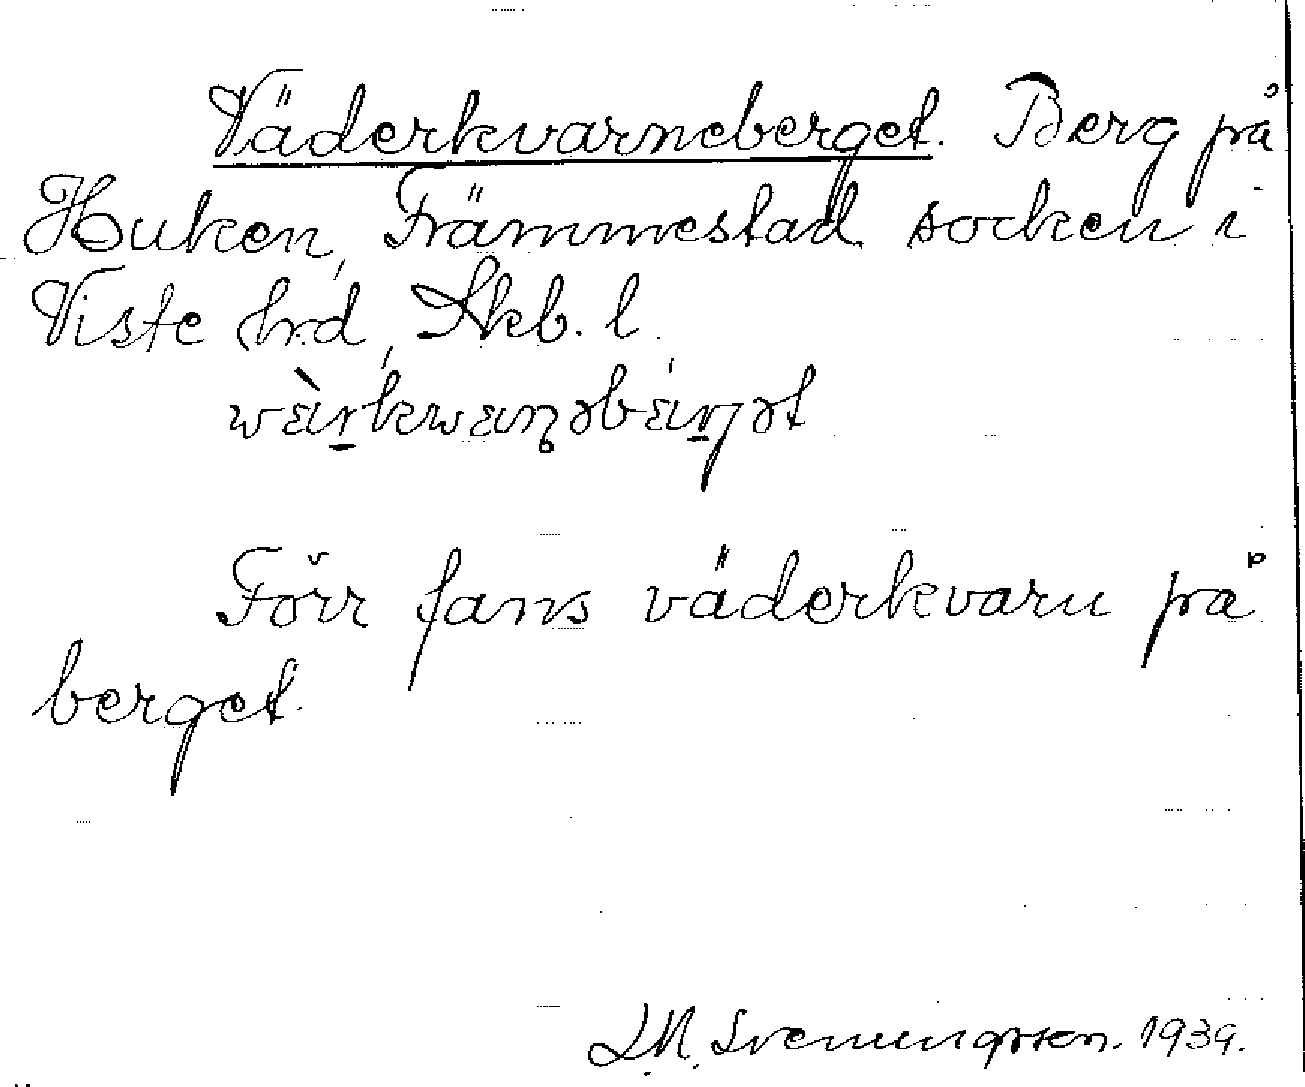 Väderkvarneberget. Berg på
Huken, Främmestad socken i
Viste hrd, Skb. l.
Förr fans väderkvarn på
berget.
Svenungsson. 1939.